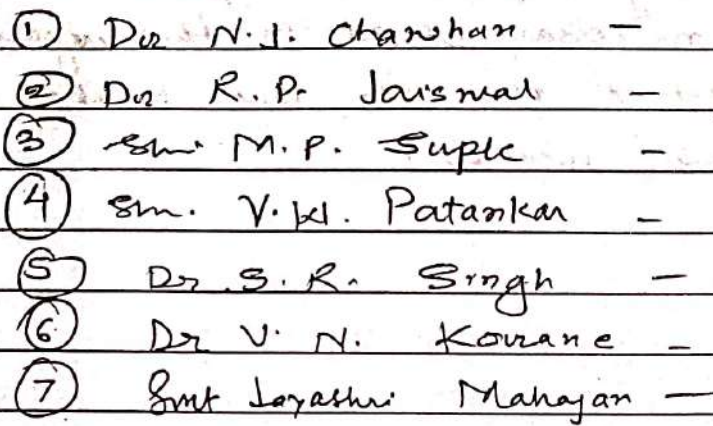 ① Dr N.J. Chavhan –
② Dr R.P. Jaiswal –
③ Shri M.P. Suple –
④ Sm. V.W. Patankar –
⑤ Dr S.R. Singh –
⑥ Dr V.N. Korane –
⑦ Smt Jayashri Mahajan –